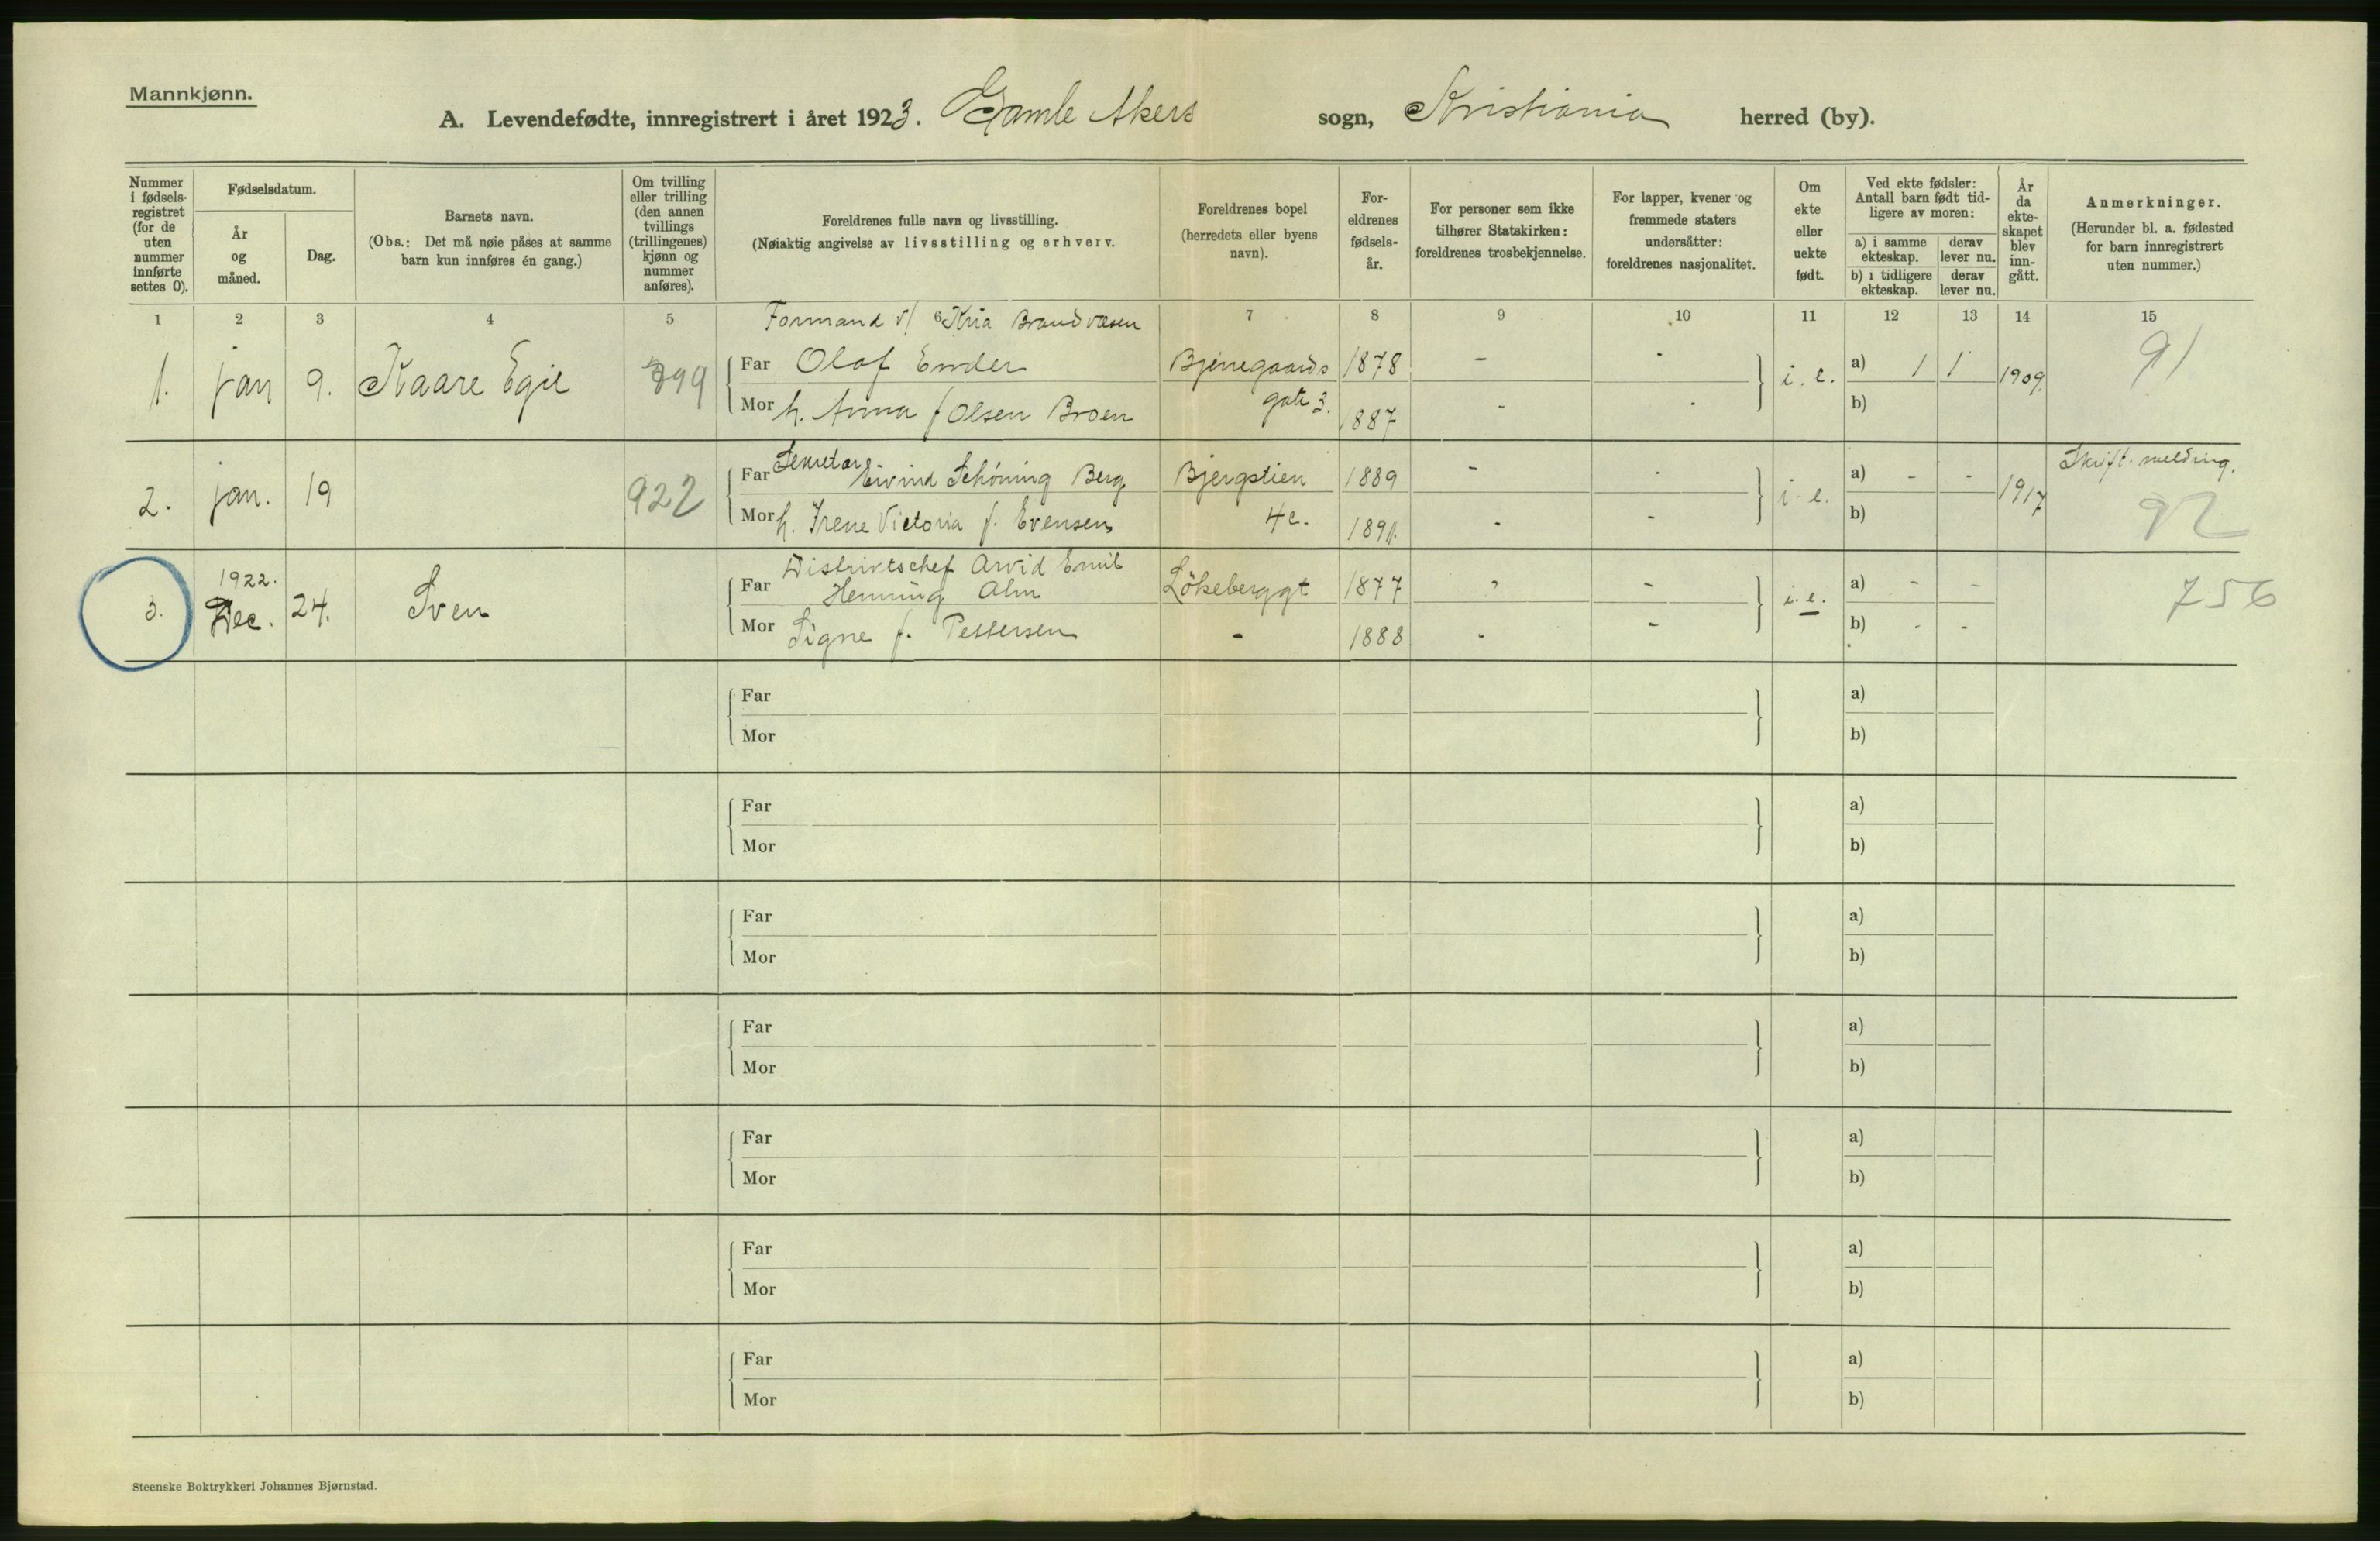 Mannkjønn.
A. Levendefødte, innregistrert i året 1923. Gamle Akers sogn, Kristiania herred (by).
Nummer i fødsels-registret (for de uten nummer innførte settes 0).
Fødselsdatum.
År og måned.
Dag.
Barnets navn.
(Obs.: Det må nøie påses at samme barn kun innføres én gang.)
Om tvilling eller trilling (den annen tvillings (trillingenes) kjønn og nummer anføres).
Foreldrenes fulle navn og livsstilling.
(Nøiaktig angivelse av livsstilling og erhverv.
Foreldrenes bopel (herredets eller byens navn).
For-eldrenes fødsels-år.
For personer som ikke tilhører Statskirken: foreldrenes trosbekjennelse.
For lapper, kvener og fremmede staters undersåtter: foreldrenes nasjonalitet.
Om ekte eller uekte født.
Ved ekte fødsler: Antall barn født tid-ligere av moren:
a) i samme ekteskap.
derav lever nu.
b) i tidligere ekteskap.
derav lever nu.
År da ekte-skapet blev inn-gått.
Anmerkninger.
(Herunder bl. a. fødested for barn innregistrert uten nummer.)
1 2 3 4 5 6 7 8 9 10 11 12 13 14 15
Formand v/ Kria Brandvæsen
1. jan 9. Kaare Egil 899 Far Olaf Emder Bjerregaards 1878 - - i. e. a) 1 1 1909. 91
Mor h. Anna f Olsen Broen gate 3. 1887 - - b)
Skrift. melding.
2. jan. 19 922 Far Sekretær Eivind Schöning Berg Bjergstien 1889 - - i. e. a) - - 1917 92
Mor h. Irene Victoria f. Evensen 4c. 1891. - - b)
Distriktschef Arvid Emil
3. 1922. Dec. 24. Sven Far Henning Alm Lökeberggt 1877 - - i. e. a) - - 756
Mor Signe f. Pettersen - 1888 - - b) - -
Far a)
Mor b)
Far a)
Mor b)
Far a)
Mor b)
Far a)
Mor b)
Far a)
Mor b)
Far a)
Mor b)
Far a)
Mor b)
Steenske Boktrykkeri Johannes Bjørnstad.